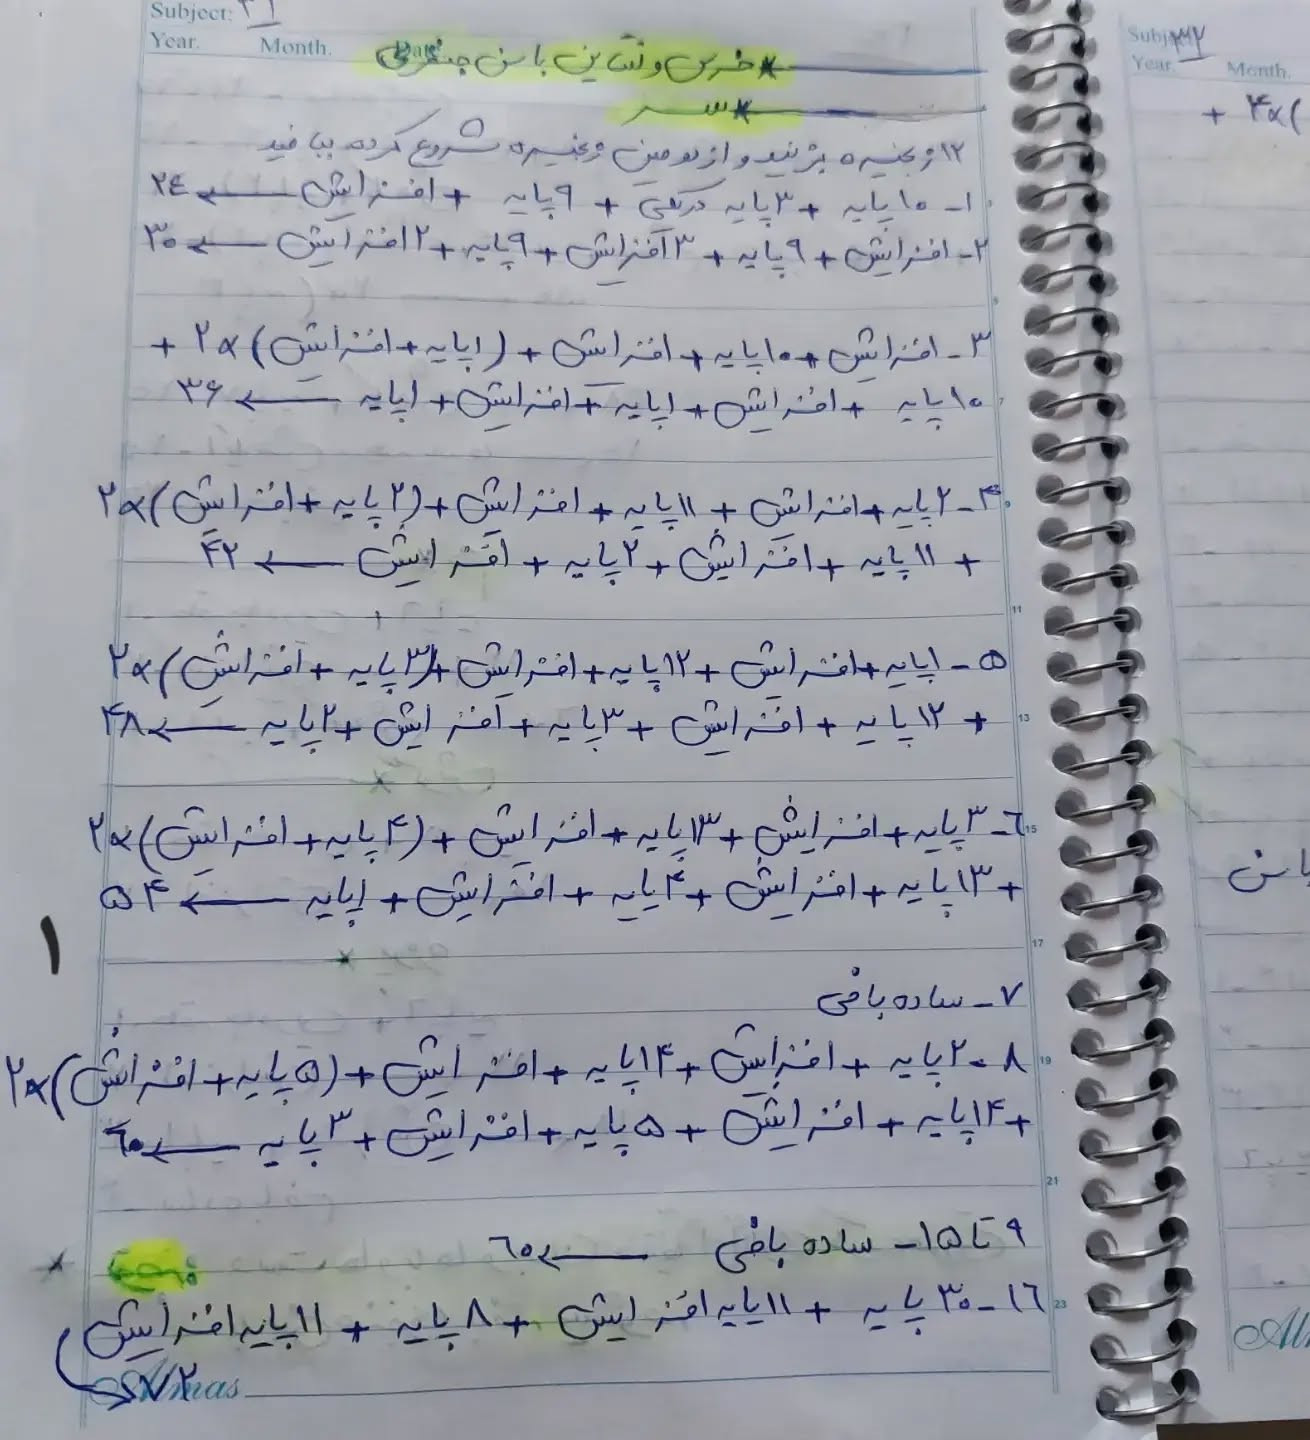 Subject: ۳۱
Year. Month. Date.
* خرس ونشاین باسن جنفری
* سر
۱۲ زنجیره بزنید و از دومین زنجیره شروع کرده ببافید
۱- ۱۰ پایه + ۳ پایه در یکی + ۹ پایه + افزایش ← ۲٤
۲- افزایش + ۹ پایه + ۳ افزایش + ۹ پایه + ۲ افزایش ← ۳۰
۳- افزایش + ۱۰ پایه + افزایش + (۱ پایه + افزایش) ×۲ +
۱۰ پایه + افزایش + ۱ پایه + افزایش + ۱ پایه ← ۳۶
۴- ۲ پایه + افزایش + ۱۱ پایه + افزایش + (۲ پایه + افزایش) ×۲
+ ۱۱ پایه + افزایش + ۲ پایه + افزایش ← ۴۲
۵- ۱ پایه + افزایش + ۱۲ پایه + افزایش + (۳ پایه + افزایش) ×۲
+ ۱۲ پایه + افزایش + ۳ پایه + افزایش + ۲ پایه ← ۴۸
٦- ۳ پایه + افزایش + ۱۳ پایه + افزایش + (۴ پایه + افزایش) ×۲
+ ۱۳ پایه + افزایش + ۴ پایه + افزایش + ۱ پایه ← ۵۴
۷- ساده بافی
۸- ۲ پایه + افزایش + ۱۴ پایه + افزایش + (۵ پایه + افزایش) ×۲
+ ۱۴ پایه + افزایش + ۵ پایه + افزایش + ۳ پایه ← ٦۰
۹ تا ۱۵- ساده بافی ← ٦۰
۱٦- ۳۰ پایه + ۱۱ پایه افزایش + ۸ پایه + ۱۱ پایه افزایش
۷۲
Almas
۱
Subject: ۳۲
Year. Month.
+ ۴×(